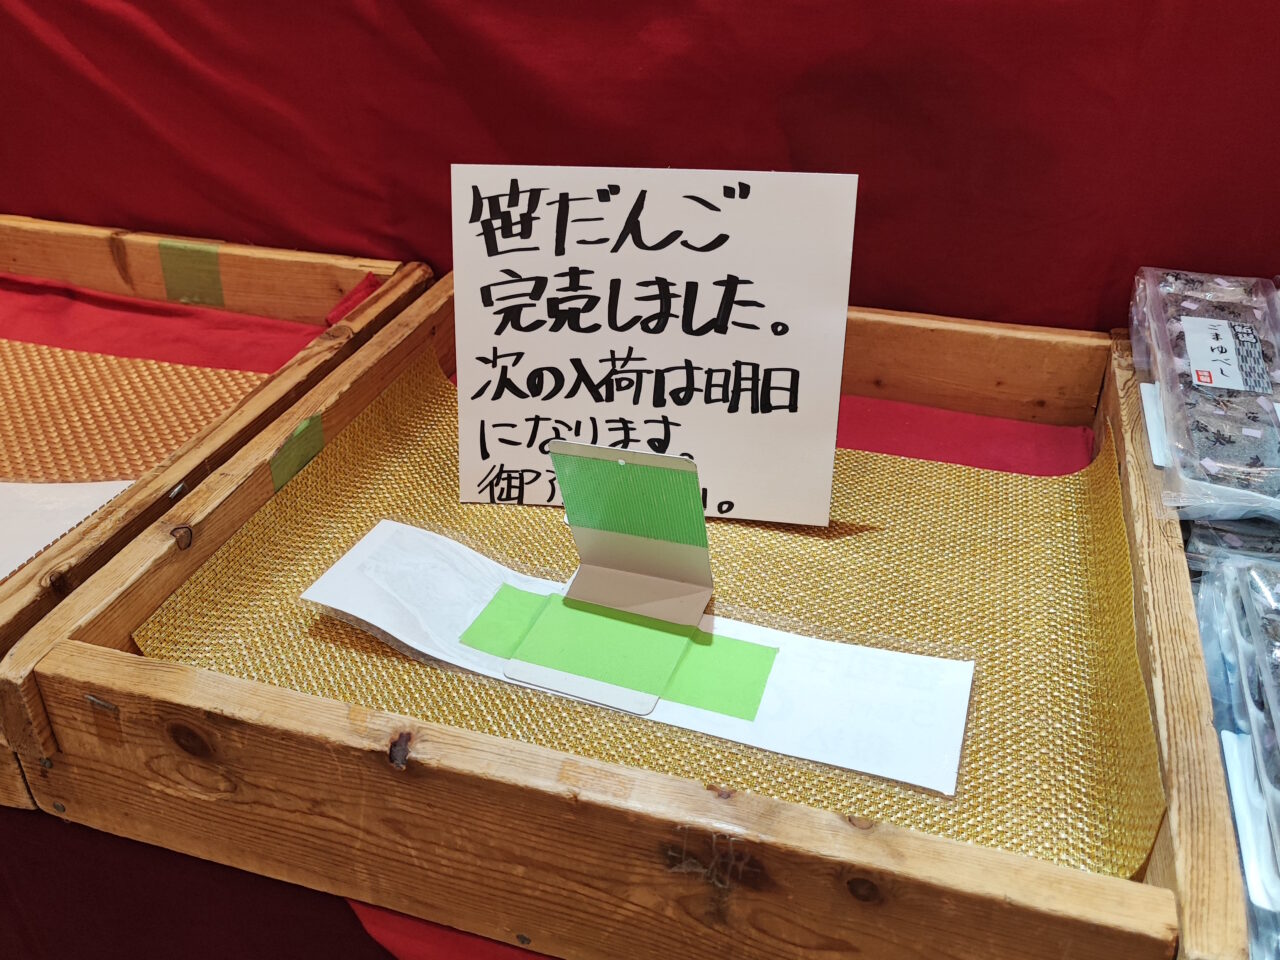 笹だんご
完売しました。
次の入荷は明日
になります。
御
ごまゆべし